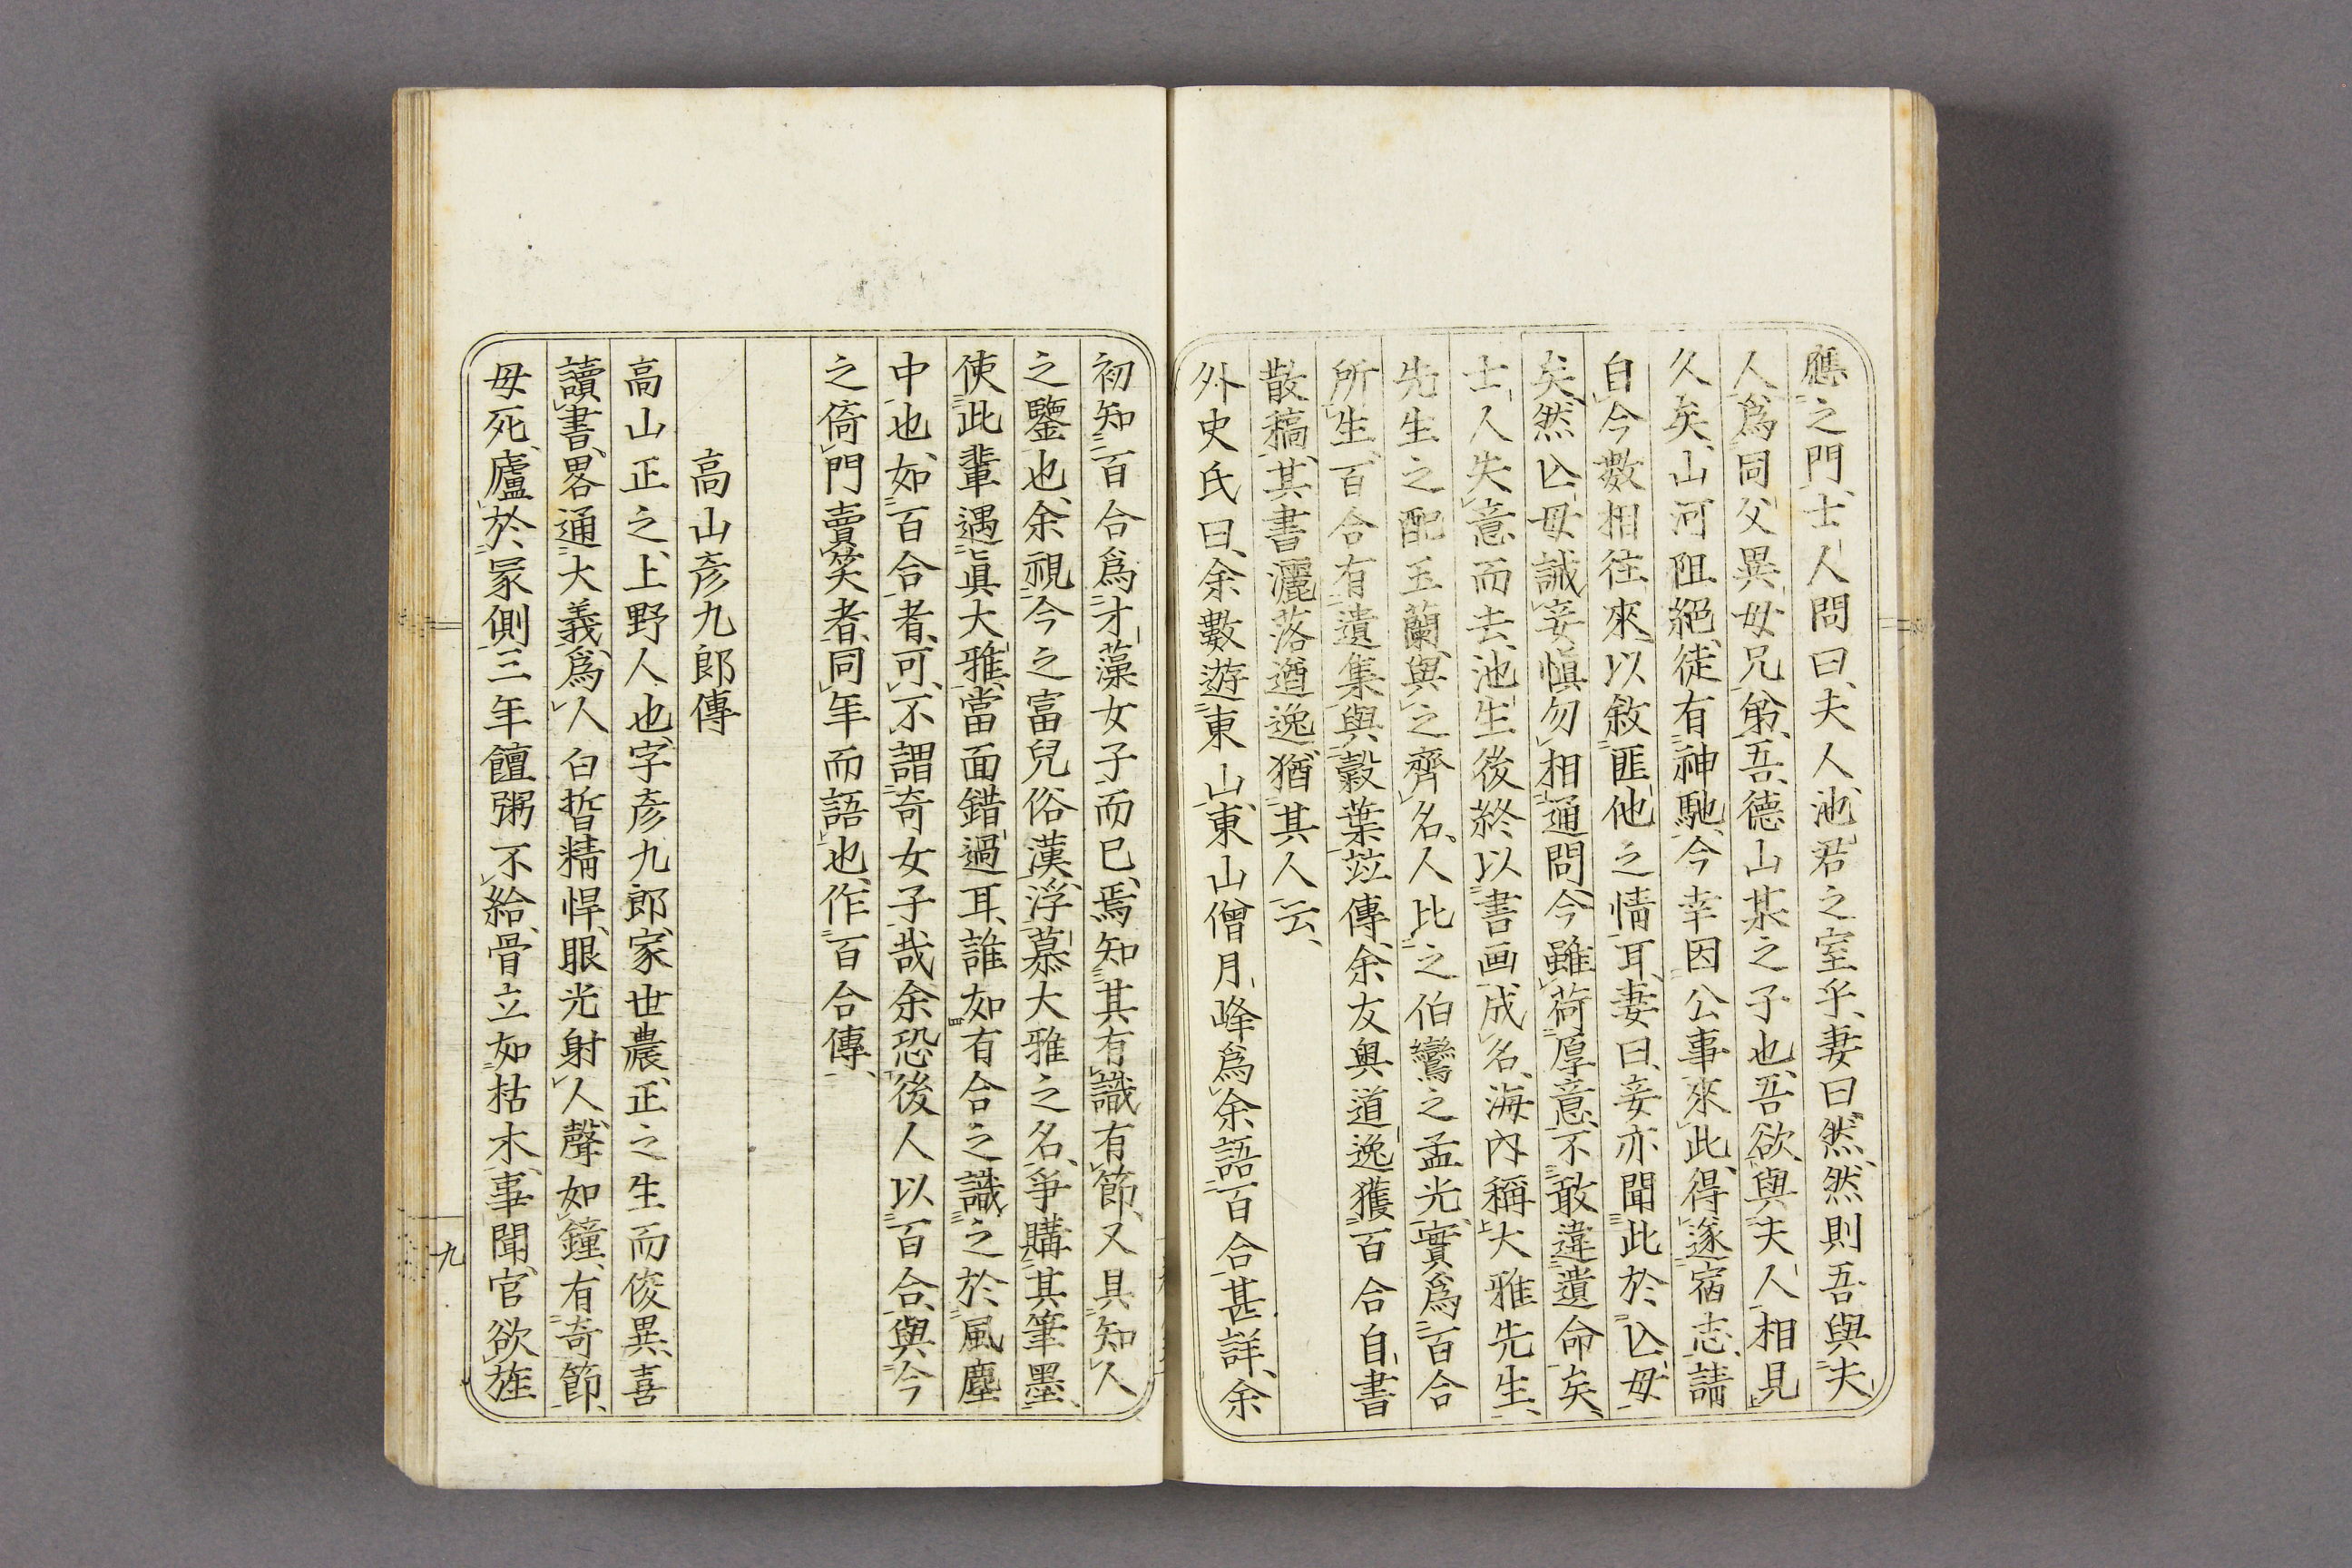 應之門、士人問曰、夫人、池君之室乎、妻曰然、然則吾與夫
人爲同父異母兄弟、吾、德山某之子也、吾欲與夫人相見
久矣、山河阻絕、徒有神馳、今幸因公事來此、得遂宿志、請
自今數相往來、以敘匪他之情耳、妻曰、妾亦聞此於亾母
矣、然亾母誡妾愼勿相通問、今雖荷厚意、不敢違遺命矣、
士人失意而去、池生後終以書画成名、海內稱大雅先生、
先生之配玉蘭、與之齊名、人比之伯鸞之孟光、實爲百合
所生、百合有遺集、與縠葉竝傳、余友奥道逸獲百合自書
散稿、其書灑落遒逸、猶其人云、
外史氏曰、余數遊東山、東山僧月峰爲余語百合甚詳、余
初知百合爲才藻女子而已、焉知其有識有節、又具知人
之鑒也、余視今之富兒俗漢、浮慕大雅之名、爭購其筆墨、
使此輩遇眞大雅、當面錯過耳、誰如有合之識之於風塵
中也、如百合者、可不謂奇女子哉、余恐後人以百合與今
之倚門賣笑者、同年而語也、作百合傳、
高山彥九郎傳
高山正之、上野人也、字彥九郎、家世農、正之生而俊異、喜
讀書、畧通大義、爲人白晳精悍、眼光射人、聲如鐘、有奇節、
母死、廬於冢側三年、饘粥不給、骨立如枯木、事聞、官欲旌
九